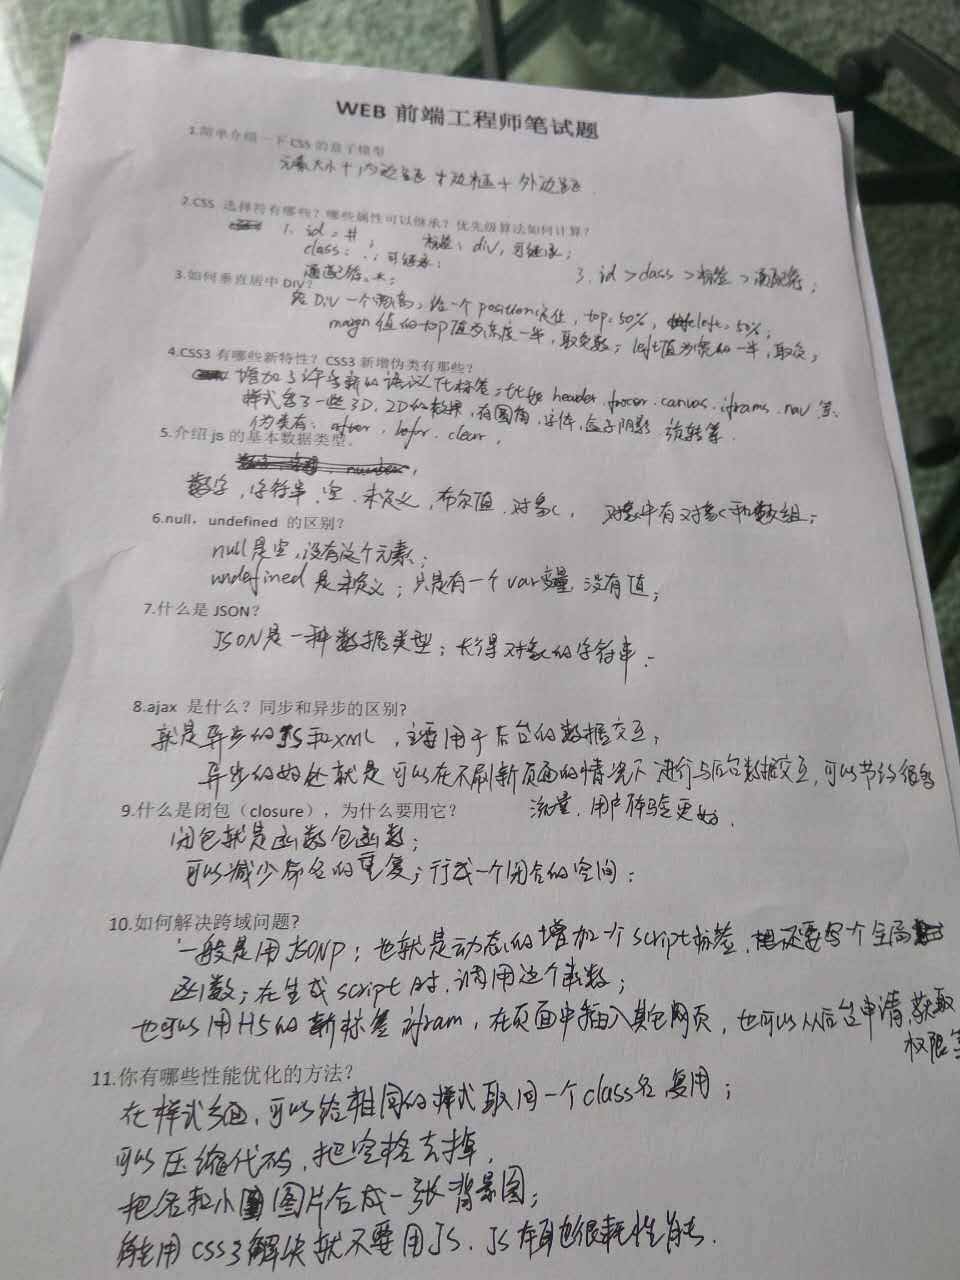 WEB 前端工程师笔试题
1.简单介绍一下 CSS 的盒子模型
元素大小 + 内边距 + 边框 + 外边距
2.CSS 选择符有哪些？哪些属性可以继承？优先级算法如何计算？
1、id: #； 标签、div, 可继承；
class: .；可继承；
通配符、*；
3、id > class > 标签 > 通配符；
3.如何垂直居中 DIV?
给 DIV 一个宽高, 给一个 position定位, top: 50%, left: 50%；
margin 值的top值为高度一半, 取负数；left值为宽的一半, 取负；
4.CSS3 有哪些新特性？CSS3 新增伪类有那些？
增加了许多新的语义化标签：比如 header.footer.canvas.iframs.nav 等、
样式多了一些3D、2D的效果, 有圆角, 字体, 盒子阴影, 旋转等.
伪类有: after, befor, clear,
5.介绍 js 的基本数据类型.
数字, 字符串, 空、未定义, 布尔值, 对象, 对象中有对象和数组；
6.null，undefined 的区别？
null是空, 没有这个元素；
undefined 是未定义；只是有一个var变量, 没有值；
7.什么是 JSON？
JSON是一种数据类型；长得对象的字符串.
8.ajax 是什么？同步和异步的区别?
就是异步的JS和XML, 主要用于后台的数据交互,
异步的好处就是可以在不刷新页面的情况下进行与后台数据交互, 可以节约很多
流量, 用户体验更好.
9.什么是闭包（closure），为什么要用它？
闭包就是函数包函数；
可以减少命名的重复；行成一个闭合的空间；
10.如何解决跨域问题?
一般是用JSONP；也就是动态的增加一个script标签, 还要写个全局
函数；在生成script时, 调用这个函数；
也可以用H5的新标签ifram, 在页面中插入其它网页, 也可以从后台申请, 获取
权限等
11.你有哪些性能优化的方法？
在样式方面, 可以给相同的样式取同一个class名复用；
可以压缩代码, 把空格去掉,
把各种小图片合成一张背景图；
能用CSS3解决就不要用JS. JS本身也很耗性能.